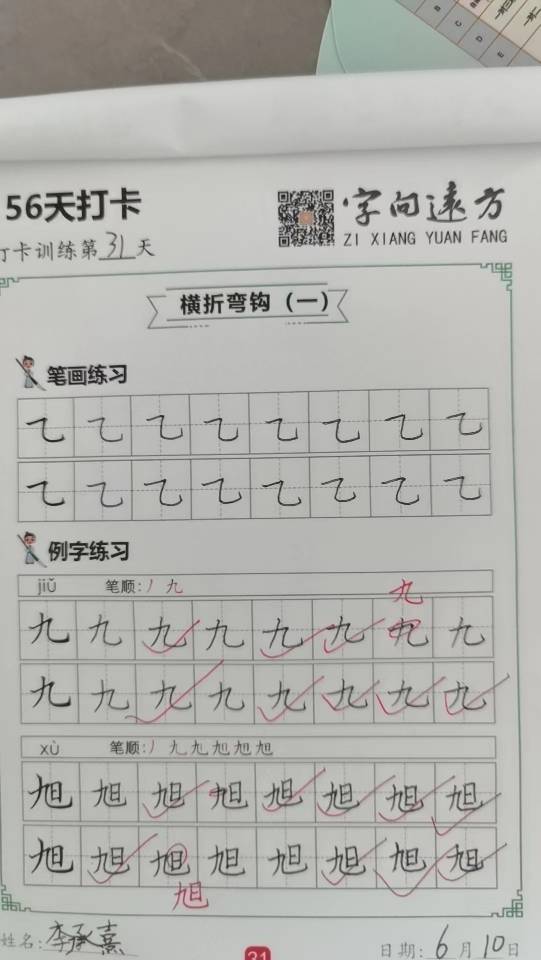 B
C
D
E
一对二
56天打卡
字向遠方
ZI XIANG YUAN FANG
打卡训练第31天
横折弯钩（一）
笔画练习
乙乙乙乙乙乙乙乙
乙乙乙乙乙乙乙乙
例字练习
jiǔ 笔顺:丿九
九
九九九九九九九九
九九九九九九九九
xù 笔顺:丿九九旭旭旭
旭旭旭旭旭旭旭旭
旭旭旭旭旭旭旭旭
旭
姓名:李承熹
31
日期:6月10日